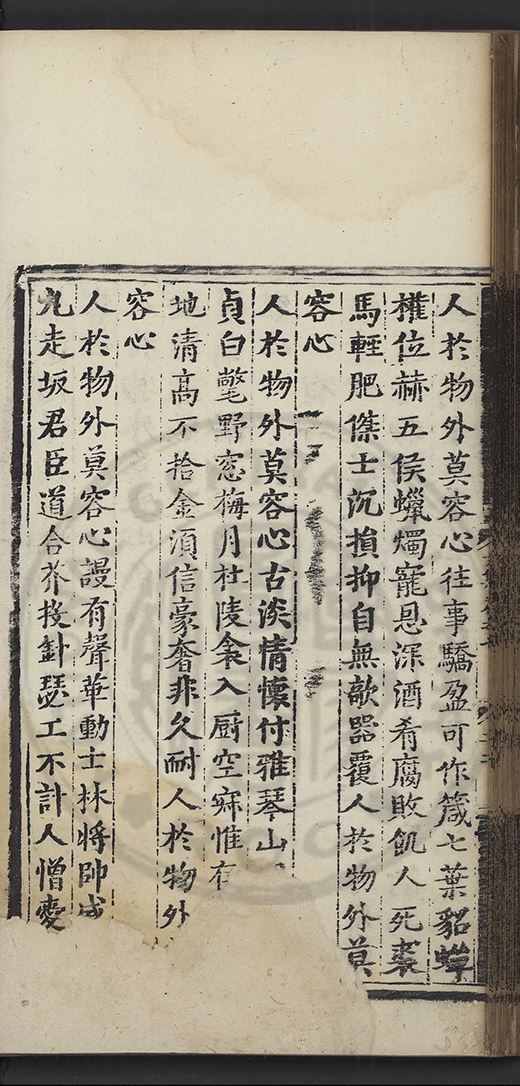 人於物外莫容心往事驕盈可作箴七葉貂蟬
權位赫五侯蠟燭寵恩深酒肴腐敗飢人死裘
馬輕肥傑士沉損抑自無欹器覆人於物外莫
容心
人於物外莫容心古淡情懷付雅琴山
貞白氅野窓梅月杜陵衾入厨空寐惟有
地清高不拾金須信豪奢非久耐人於物外
容心
人於物外莫容心謾有聲華動士林將帥成
丸走坂君臣道合芥投針瑟工不計人憎愛